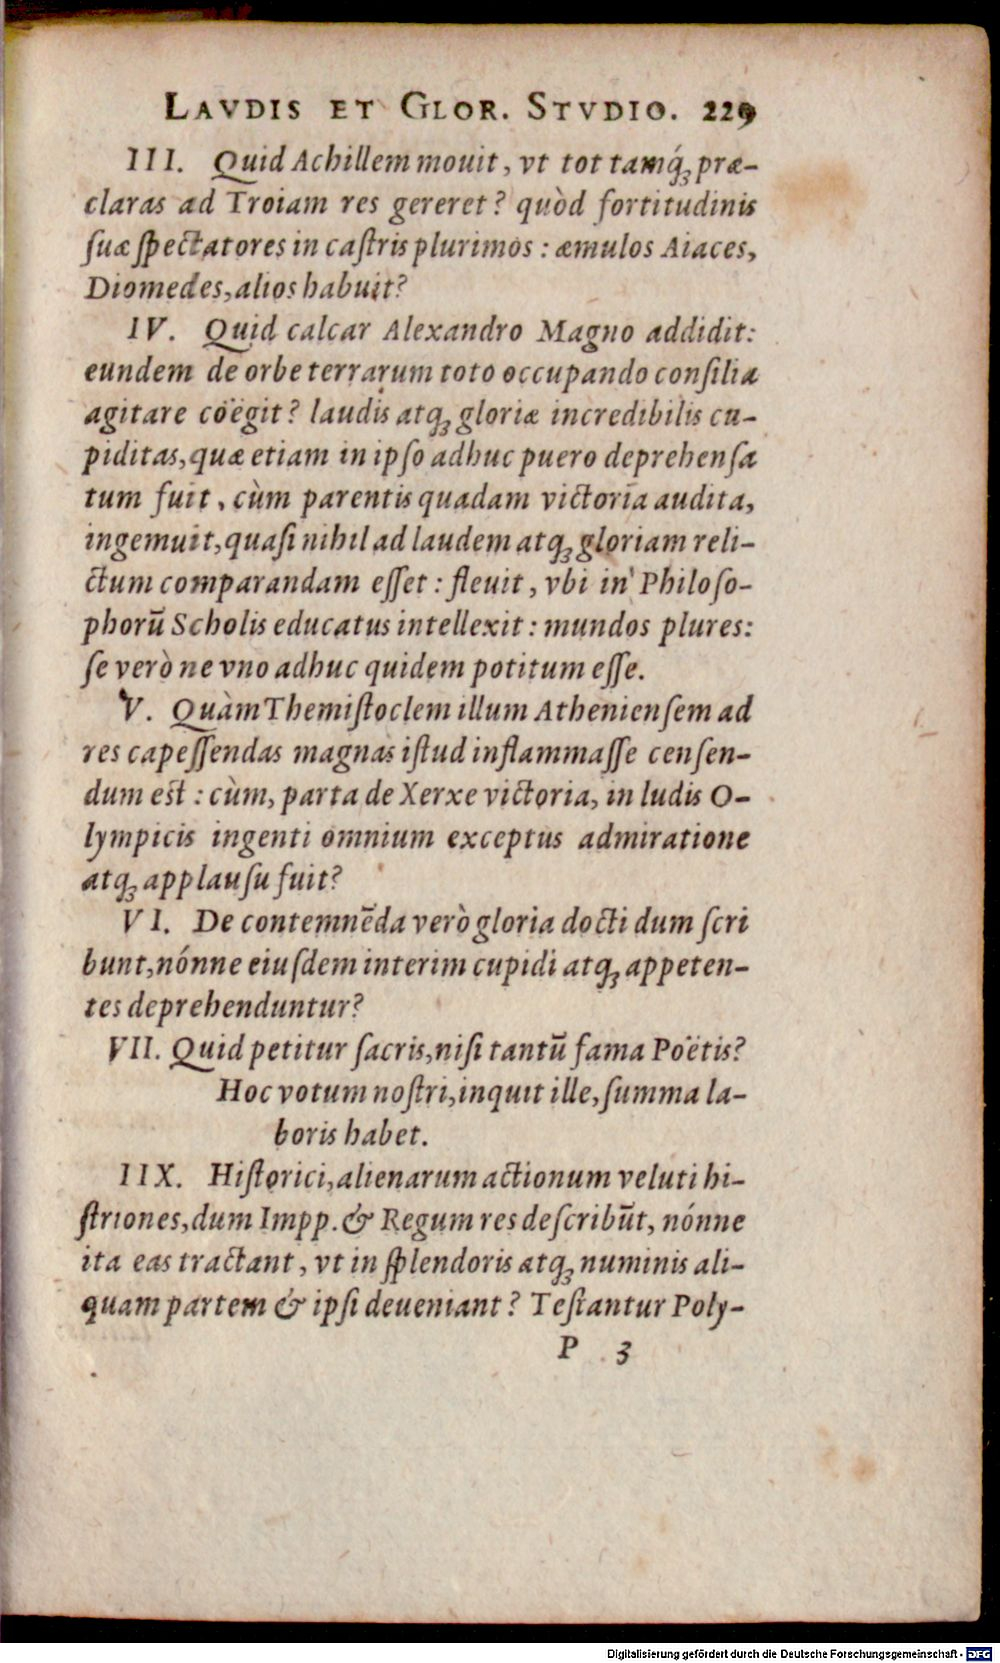 LAVDIS ET GLOR. STVDIO. 229
III. Quid Achillem mouit, vt tot tamq́; præ-
claras ad Troiam res gereret? quòd fortitudinis
ſuæ ſpectatores in caſtris plurimos: æmulos Aiaces,
Diomedes, alios habuit?
IV. Quid calcar Alexandro Magno addidit:
eundem de orbe terrarum toto occupando conſilia
agitare coëgit? laudis atq; gloriæ incredibilis cu-
piditas, quæ etiam in ipſo adhuc puero deprehenſa
tum fuit, cùm parentis quadam victoria audita,
ingemuit, quaſi nihil ad laudem atq; gloriam reli-
ctum comparandam eſſet: fleuit, vbi in Philoſo-
phorū Scholis educatus intellexit: mundos plures:
ſe verò ne vno adhuc quidem potitum eſſe.
V. Quàm Themiſtoclem illum Athenienſem ad
res capeſſendas magnas iſtud inflammaſſe cenſen-
dum est: cùm, parta de Xerxe victoria, in ludis O-
lympicis ingenti omnium exceptus admiratione
atq; applauſu fuit?
VI. De contemnēda verò gloria docti dum ſcri
bunt, nónne eiuſdem interim cupidi atq; appeten-
tes deprehenduntur?
VII. Quid petitur ſacris, niſi tantū fama Poëtis?
Hoc votum noſtri, inquit ille, ſumma la-
boris habet.
IIX. Hiſtorici, alienarum actionum veluti hi-
ſtriones, dum Impp. & Regum res deſcribūt, nónne
ita eas tractant, vt in ſplendoris atq; numinis ali-
quam partem & ipſi deueniant? Teſtantur Poly-
P 3
Digitalisierung gefördert durch die Deutsche Forschungsgemeinschaft - DFG